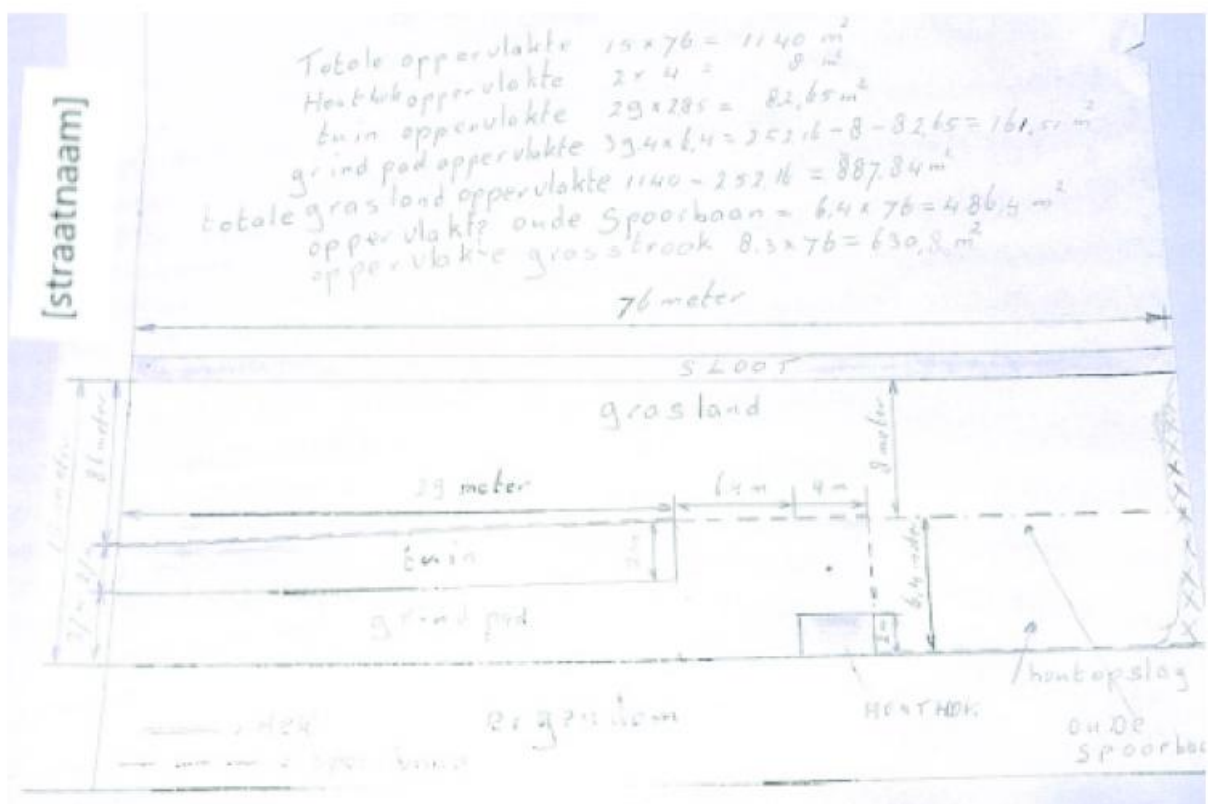 Totale oppervlakte 15 x 76 = 1140 m²
Houthokoppervlakte 2 x 4 = 8 m²
tuin oppervlakte 29 x 285 = 82,65 m²
grind pad oppervlakte 39.4 x 6,4 = 252.16 - 8 - 82,65 = 161,51 m²
totale grasland oppervlakte 1140 - 252.16 = 887,84 m²
oppervlakte oude Spoorbaan = 6,4 x 76 = 486,4 m²
oppervlakte grasstrook 8.3 x 76 = 630,8 m²
[straatnaam]
76 meter
SLOOT
grasland
8 meter
29 meter
6,4 m
4 m
tuin
6,4 meter
grind pad
2 m
houtopslag
eigendom
HOUTHOK
OUDE
SPOORBA
= HEK